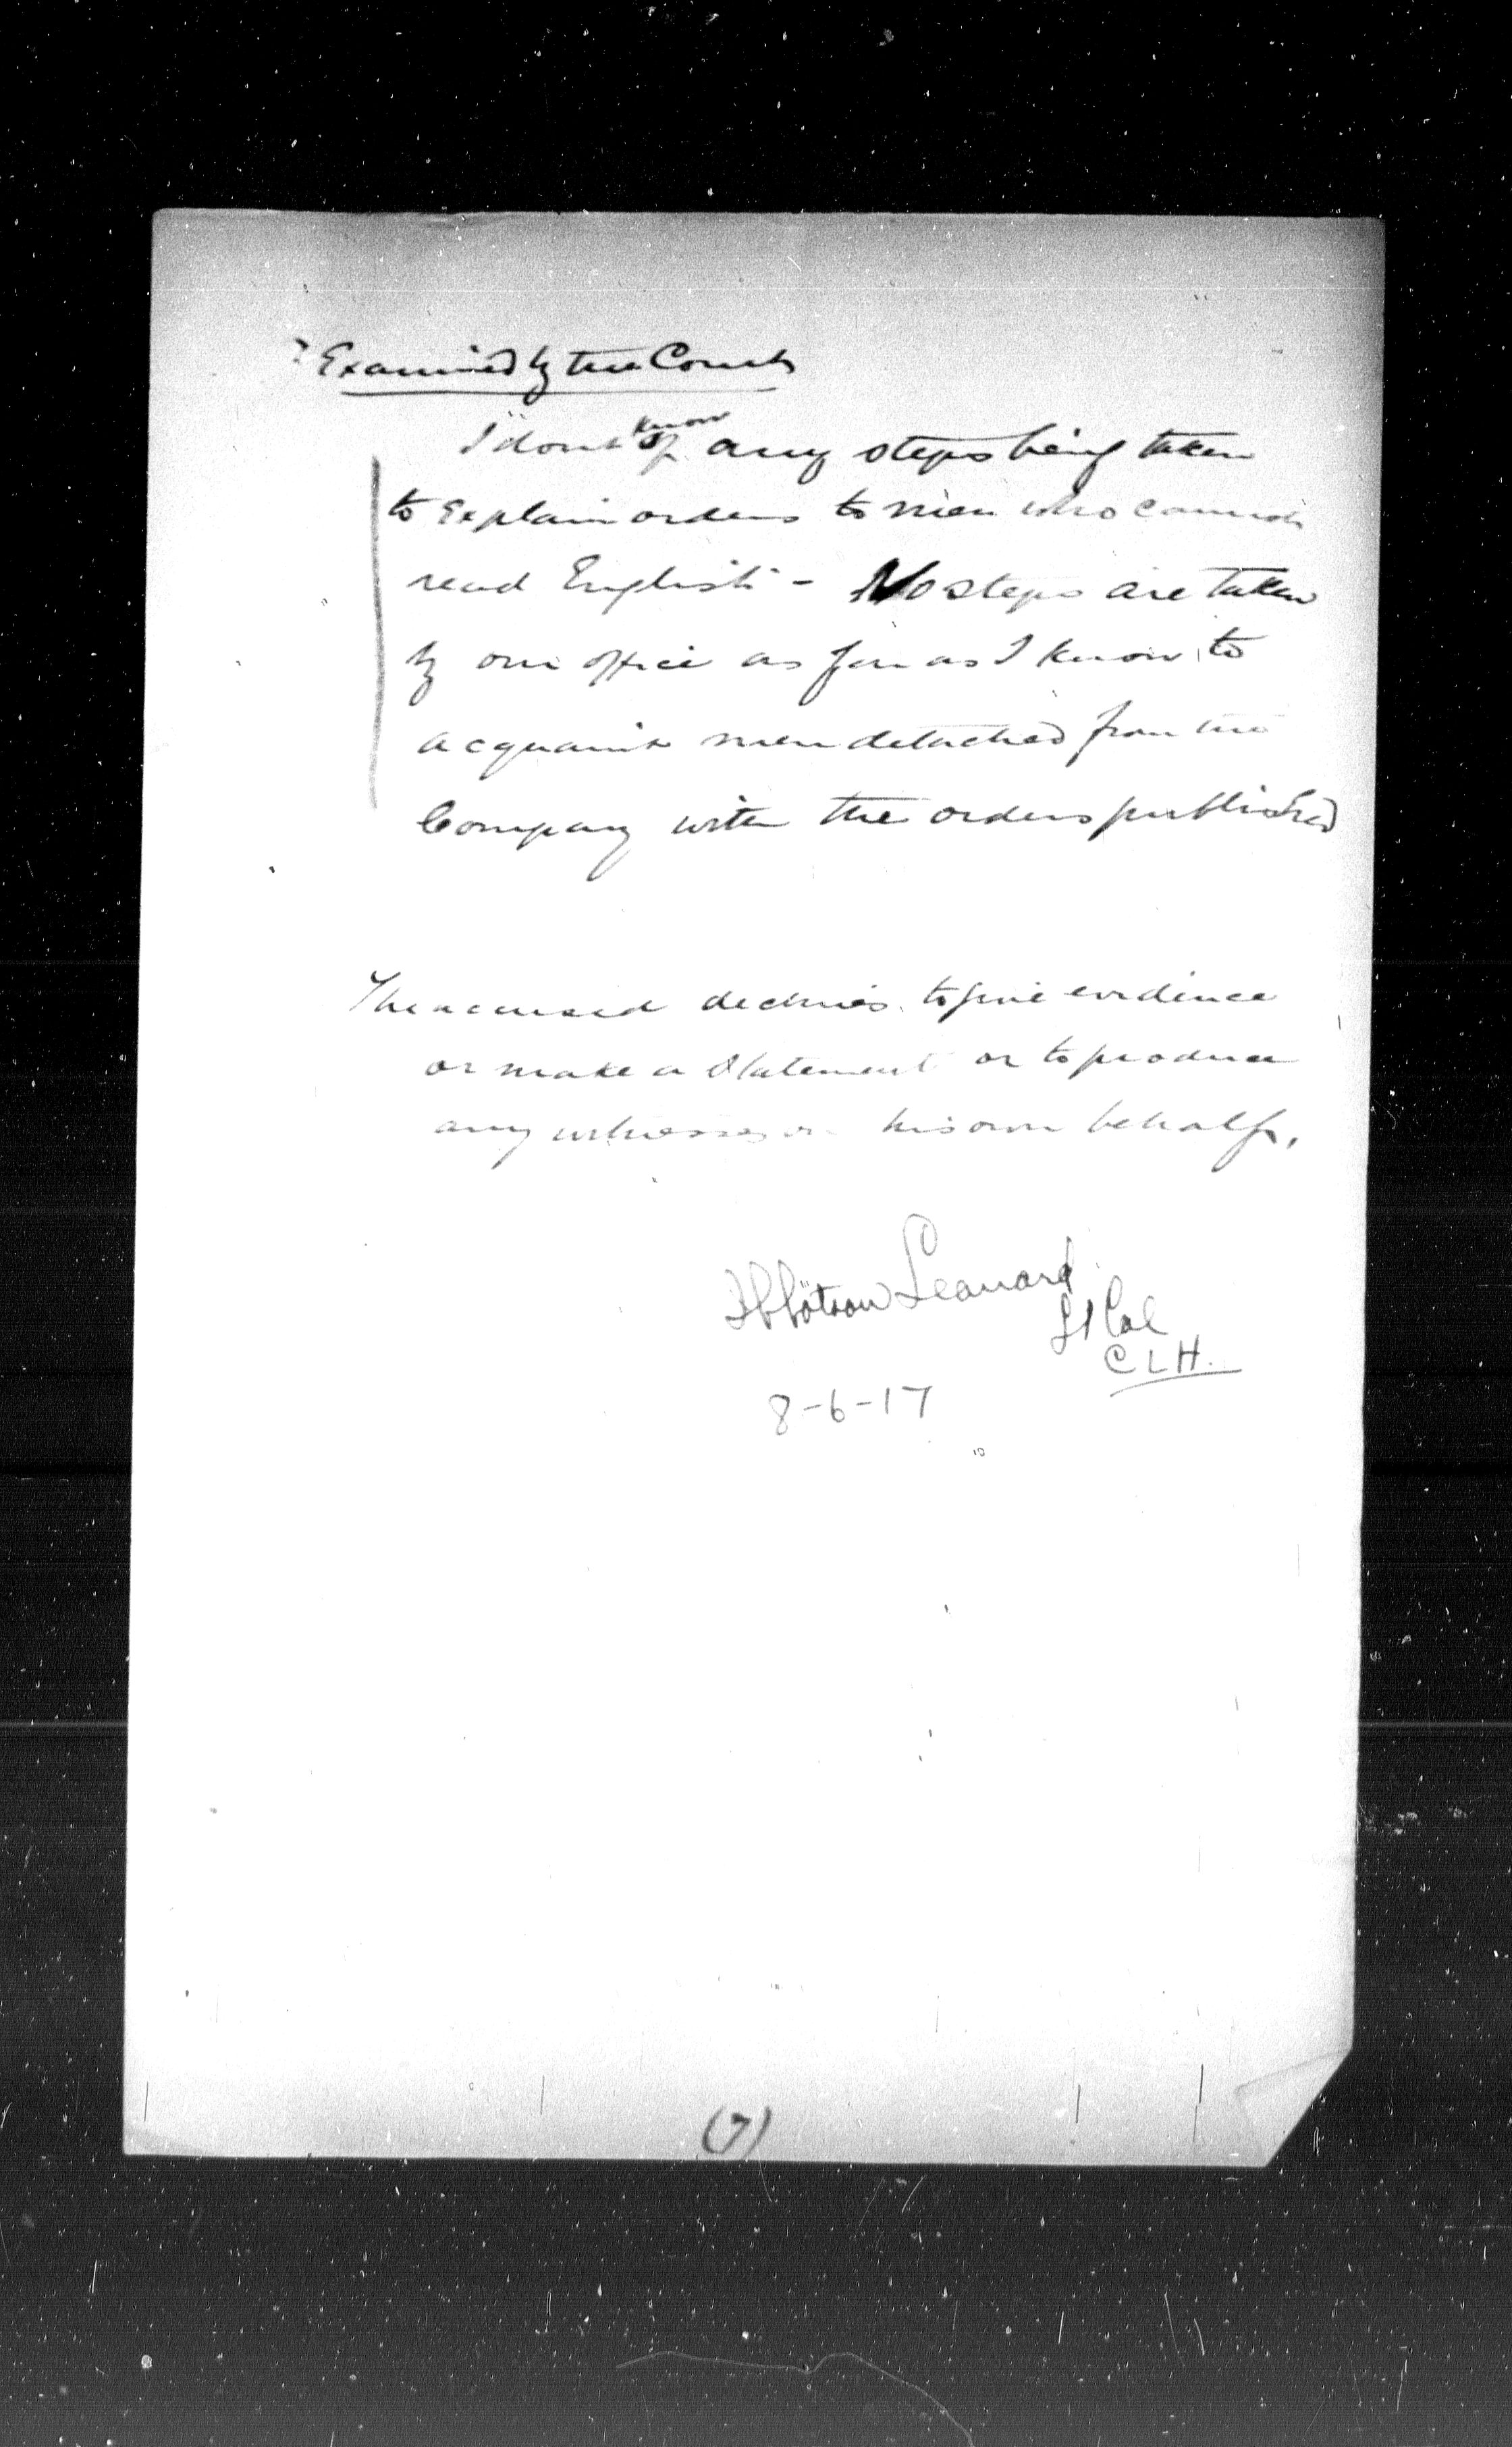 Examined by the Court
I dont know of any steps being taken
to explain orders to men who cannot
read English - No steps are taken
by our office as far as I know to
acquaint men detached from the
Company with the orders published
The accused declines to give evidence
or make a statement or to produce
any witnesses on his own behalf.
Ibbotson Leonard
Lt Col
C L H.
8-6-17
(7)